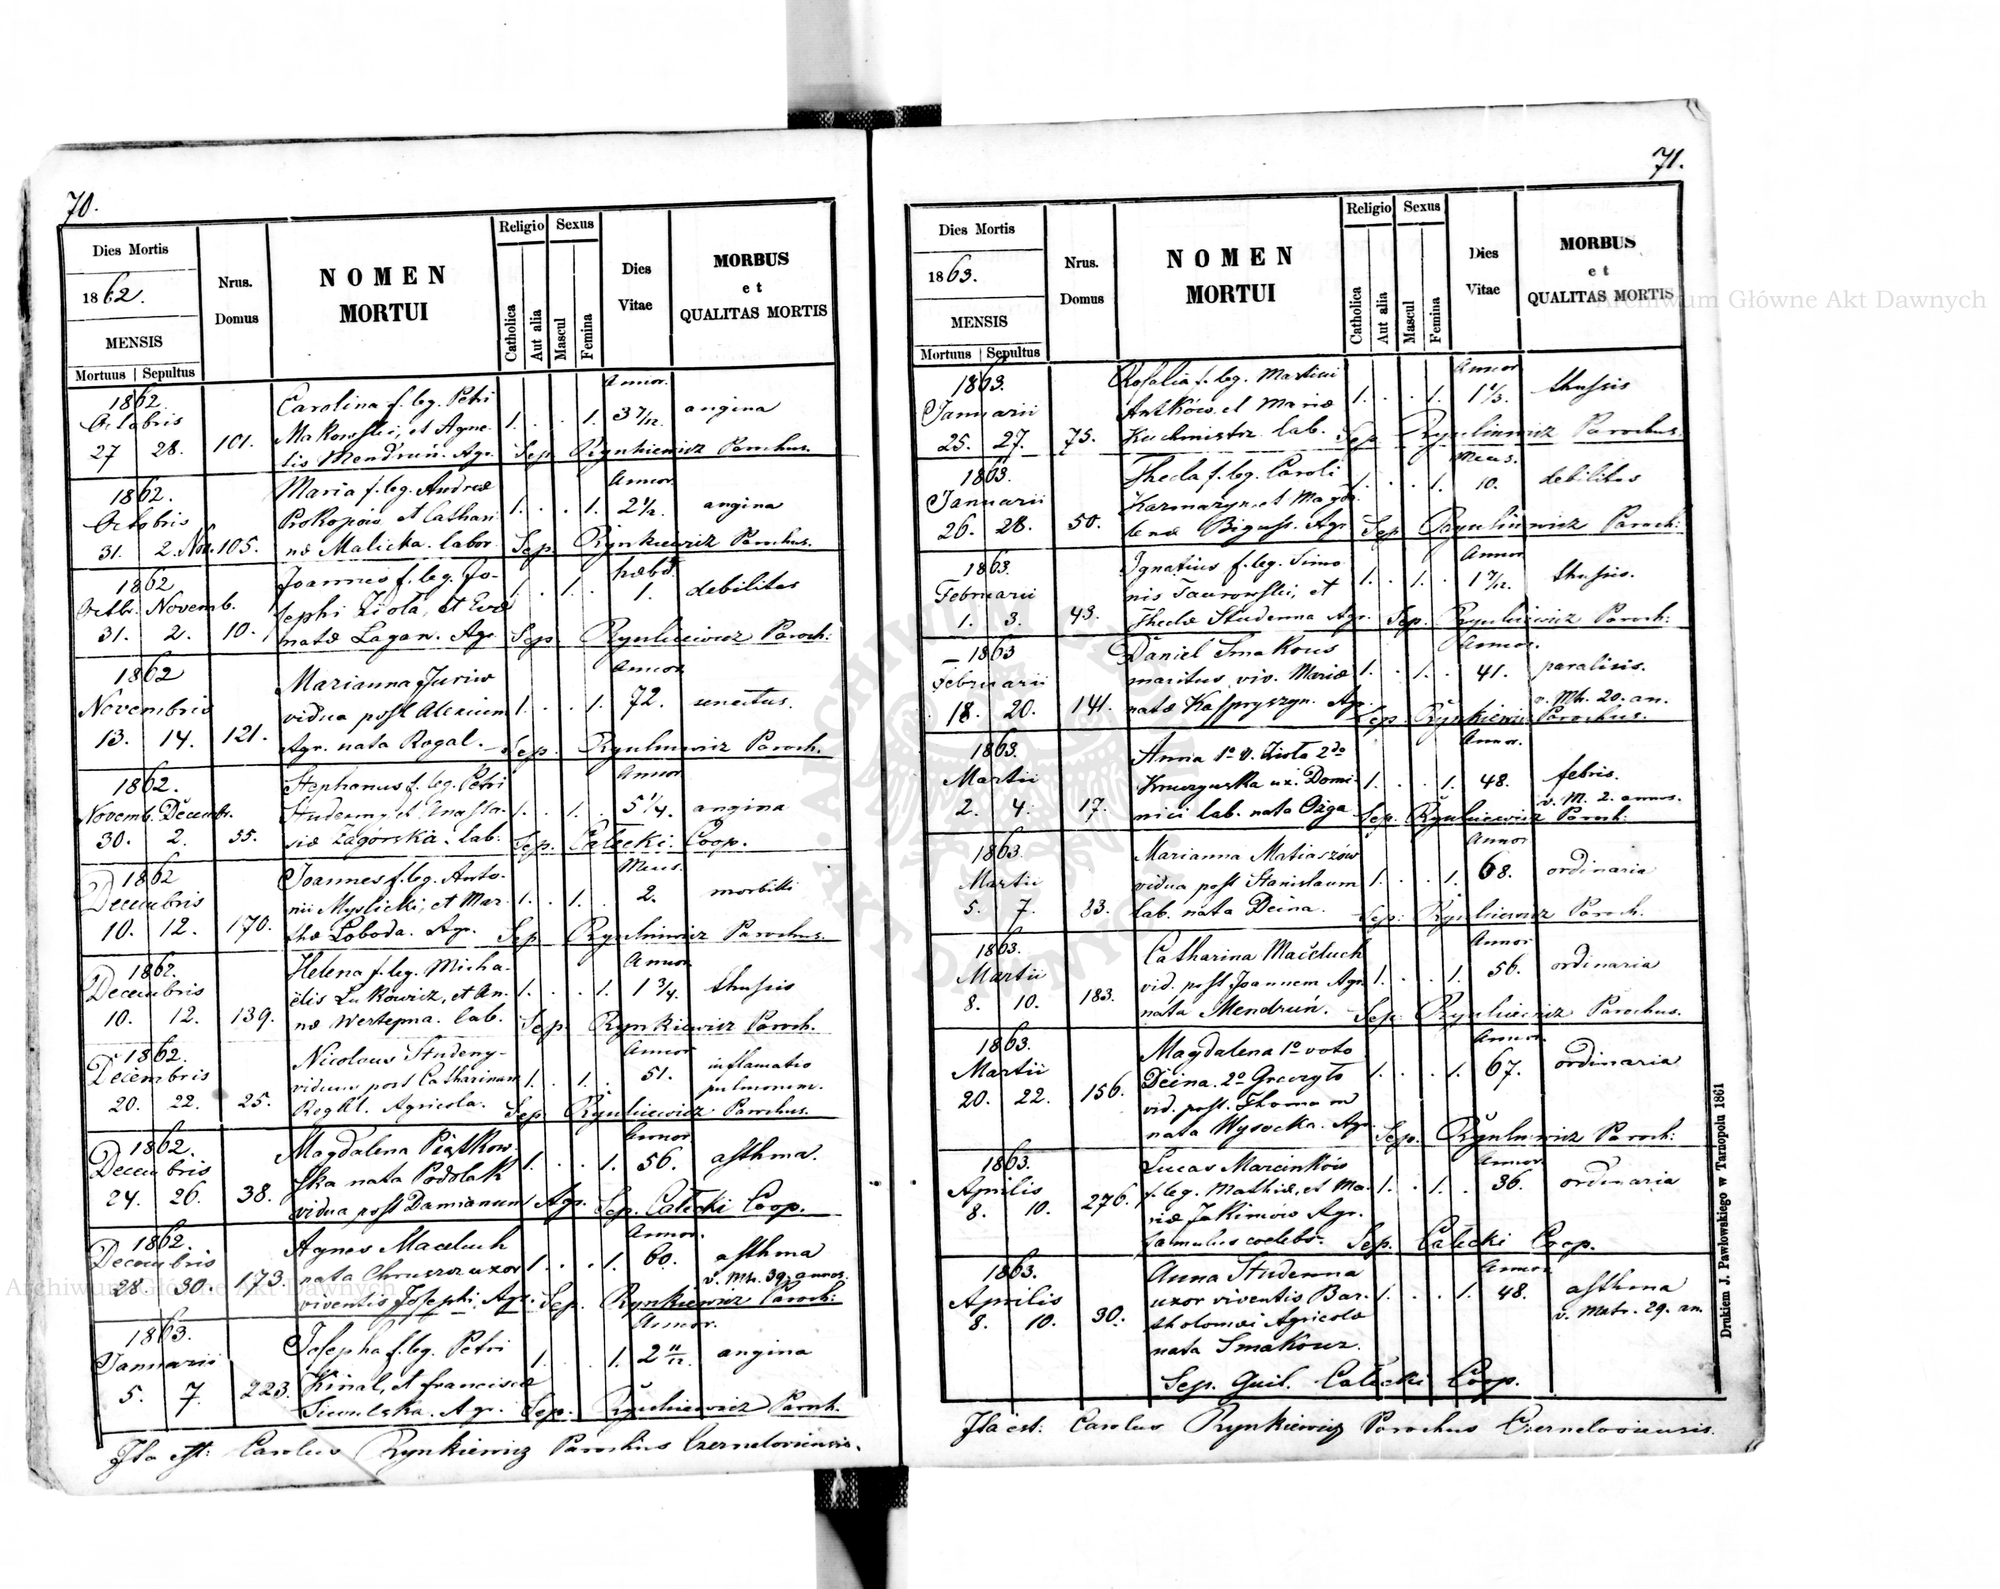 70.
Dies Mortis
1862.
MENSIS
Mortuus | Sepultus
Nrus. Domus
NOMEN
MORTUI
Religio
Catholica
Aut alia
Sexus
Mascul
Femina
Dies
Vitae
MORBUS
et
QUALITAS MORTIS
1862 Annor.
Octobris Carolina f. leg. Petri
Makowski, et Agne- 1. . . 1. 3 7/12. angina
27 28. 101. tis Mendruń. Agr. Sep. Rynkiewicz Parochus.
1862. Maria f. leg. Andreæ Annor.
Octobris Prokopów et Cathari 1. . . 1. 2 1/2. angina
31. 2. Nov. 105. næ Malicka. labor. Sep. Rynkiewicz Parochus.
1862 Joannes f. leg. Jo- hebd.
Octbr. Novemb. sephi Zioła, et Evæ 1. . 1. . 1. debilitas
31. 2. 10. natæ Łagan. Agr. Sep. Rynkiewicz Paroch:
1862 Annor.
Novembris Marianna Juriw
vidua post Alexium 1. . . 1. 72. senectus.
13. 14. 121. Agr. nata Rogal. Sep. Rynkiewicz Paroch.
1862. Stephanus f. leg. Petri Annor
Novemb. Decembr. Studenny et Anasta- 1. . 1. . 5 1/4. angina
30. 2. 55. siæ Zagórska. Lab: Sep. Całecki. Coop.
1862 Joannes f. leg. Anto- Mens.
Decembris nii Myslicki, et Mar- 1. . 1. . 2. morbilli
10. 12. 170. thæ Łoboda. Agr. Sep. Rynkiewicz Parochus.
1862. Helena f. leg. Micha- Annor.
Decembris ëlis Łukowicz, et An- 1. . . 1. 1 3/4. thussis
10. 12. 139. næ Wertepna. lab. Sep. Rynkiewicz Paroch.
1862. Nicolaus Studeny- Annor
Decembris viduus post Catharinam 1. . 1. . 51. inflamatio pulmonum.
20. 22. 25. Agricola. Sep. Rynkiewicz Parochus.
1862. Magdalena Piątkow- Annor
Decembris ska nata Podolak 1. . . 1. 56. asthma.
24. 26. 38. vidua post Damianum Agr. Sep. Całecki Coop.
1862. Agnes Maceluch Annor.
Decembris nata Chruszcz uxor 1. . . 1. 60. asthma
28. 30. 173. viventis Josephi. Agr. Sep. Rynkiewicz Paroch: v. Mtr. 39. annos.
1863. Josepha f. leg. Petri Annor.
Januarii Kinal, et Francisca 1. . . 1. 2 11/12. angina
5. 7. 223. Agr. Sep. Rynkiewicz Paroch.
Ita est: Carolus Rynkiewicz Parochus Czerneloviensis.
71.
Dies Mortis
1863.
MENSIS
Mortuus | Sepultus
Nrus.
Domus
NOMEN
MORTUI
Religio
Catholica
Aut alia
Sexus
Mascul
Femina
Dies
Vitae
MORBUS
et
QUALITAS MORTIS
1863. Rosalia f. leg. Martini Annor
Januarii Antków, et Mariæ 1. . . 1. 1 1/3. thussis
25. 27. 75. Kuchmistrz lab. Sep. Rynkiewicz Parochus.
1863. Thecla f. leg. Caroli Mens.
Januarii Karmazyn, et Magda 1. . . 1. 10. debilitas
26. 28. 50. lenæ Agr. Sep. Rynkiewicz Paroch:
1863. Ignatius f. leg. Simo Annor
Februarii nis Taurowski, et 1. . 1. . 1 7/12. thussis.
1. 3. 43. Theclæ Studenna Agr. Sep. Rynkiewicz Paroch:
1863 Daniel Smakous Annor.
Februarii maritus viv. Mariæ 1. . 1. . 41. paralisis.
18. 20. 141. natæ Kaspryszyn. Agr. Sep. Rynkiewicz Parochus. v. Mtr. 20. an.
1863. Anna 1º v. Zioła 2do Annor.
Martii ux. Domi- 1. . . 1. 48. febris.
2. 4. 17. nici lab. nata Ożga Sep. Rynkiewicz Paroch: v. M. 2. annos.
1863. Marianna Matiaszów Annor
Martii vidua post Stanislaum 1. . . 1. 68. ordinaria
5. 7. 33. lab. nata Dcina. Sep. Rynkiewicz Paroch.
1863. Catharina Maceluch Annor
Martii vid. post Joannem Agr. 1. . . 1. 56. ordinaria
8. 10. 183. nata Mendruń. Sep. Rynkiewicz Parochus.
1863. Magdalena 1º voto Annor.
Martii Dcina. 2º 1. . . 1. 67. ordinaria
20. 22. 156. vid. post. Thomam
nata Wysocka. Agr. Sep. Rynkiewicz Paroch:
1863. Lucas Marcinków Annor.
Aprilis f. leg. Mathiæ, et Ma- 1. . 1. . 36. ordinaria
8. 10. 276. riæ Jakimów Agr.
famulus coelebs. Sep. Całecki Coop.
1863. Anna Studenna Annor
Aprilis uxor viventis Bar- 1. . . 1. 48. asthma
8. 10. 30. tholomæi Agricolæ v. Matr. 29. an.
nata Smakouz.
Sep. Guil. Całecki Coop.
Ita est: Carolus Rynkiewicz Parochus Czerneloviensis.
Drukiem J. Pawłowskiego w Tarnopolu 1861
Archiwum Główne Akt Dawnych
Archiwum Główne Akt Dawnych
ARCHIWUM GŁÓWNE AKT DAWNYCH